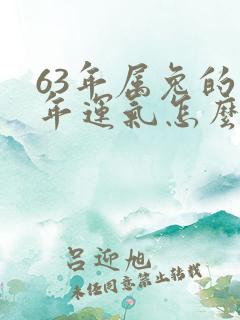 63年属兔的
年运气怎么
吕迎旭
未经同意禁止转载